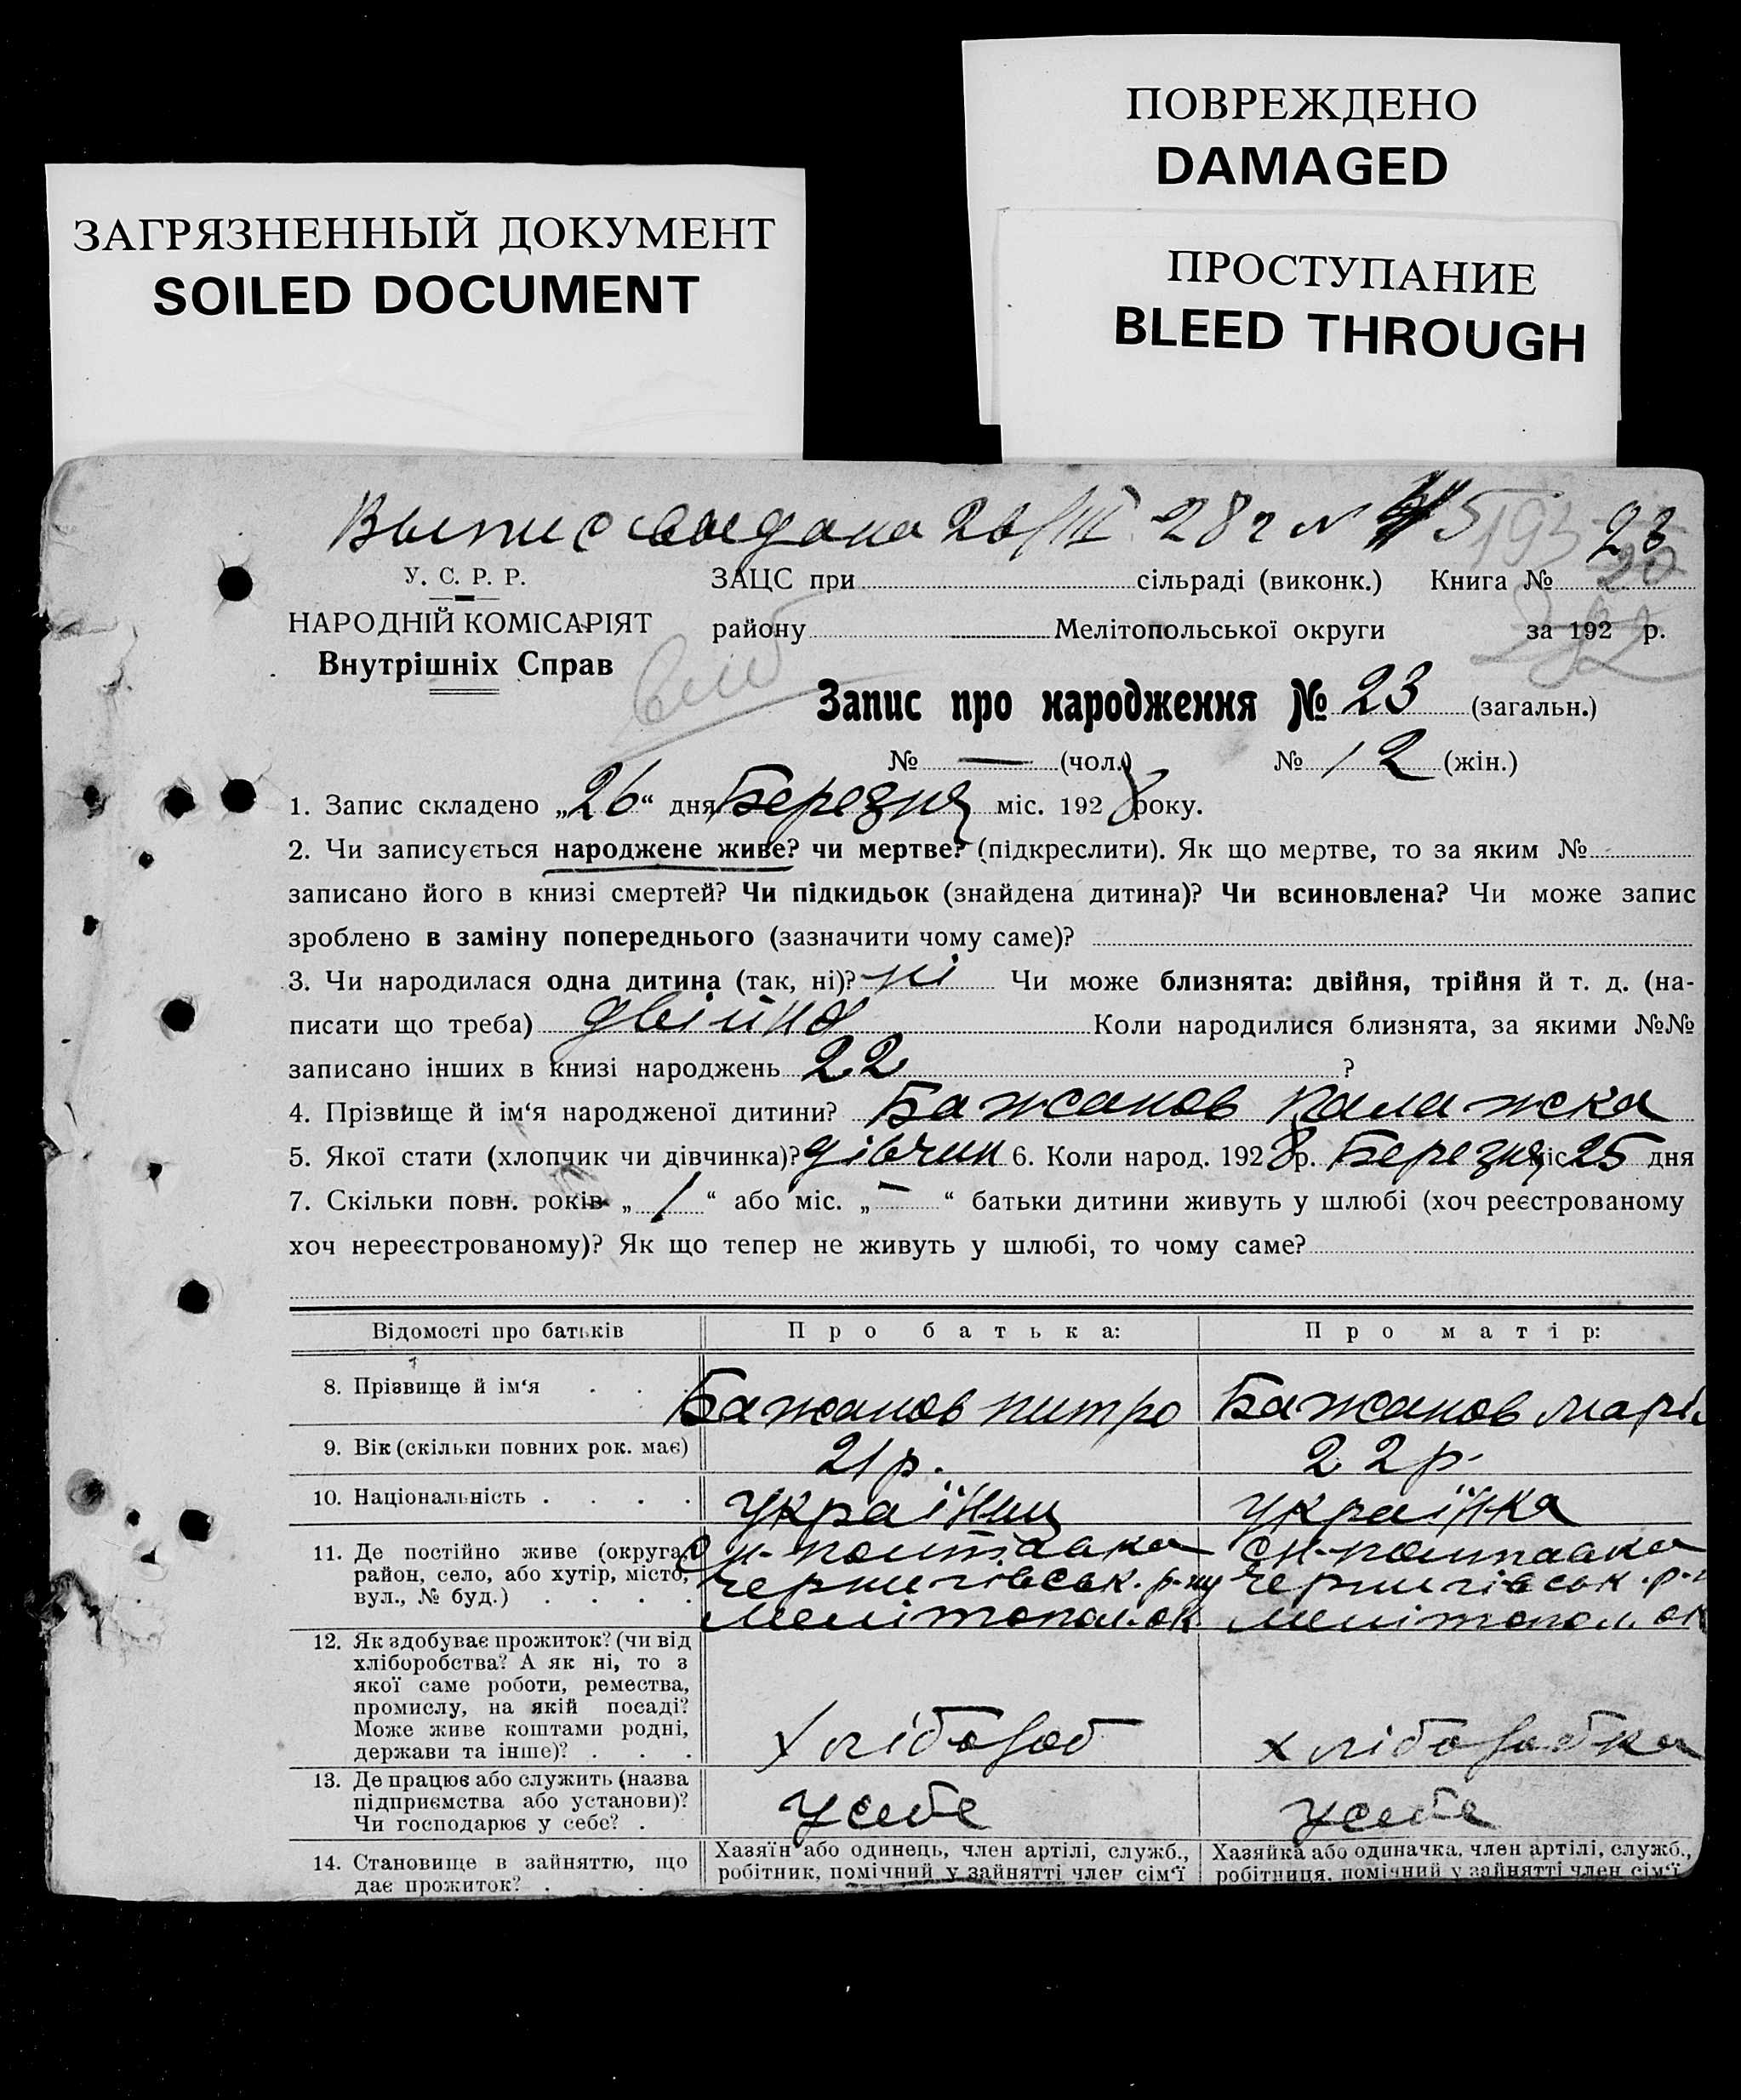 ПОВРЕЖДЕНО
DAMAGED
ЗАГРЯЗНЕННЫЙ ДОКУМЕНТ
SOILED DOCUMENT
ПРОСТУПАНИЕ
BLEED THROUGH
28 г N 5 193 23
У. С. Р. Р.
ЗАЦС при сільраді (виконк.) Книга №
НАРОДНІЙ КОМІСАРІЯТ
району Мелітопольської округи за 192 р.
Внутрішніх Справ
Запис про народження № 23 (загальн.)
№ — (чол.) № 12 (жін.)
1. Запис складено „26“ дня Березня міс. 1928 року.
2. Чи записується народжене живе? чи мертве? (підкреслити). Як що мертве, то за яким №
записано його в книзі смертей? Чи підкидьок (знайдена дитина)? Чи всиновлена? Чи може запис
зроблено в заміну попереднього (зазначити чому саме)?
3. Чи народилася одна дитина (так, ні)? ні Чи може близнята: двійня, трійня й т. д. (на-
писати що треба) двійня Коли народилися близнята, за якими №№
записано інших в книзі народжень 22 ?
4. Прізвище й ім‘я народженої дитини? Бажанов Палажка
5. Якої стати (хлопчик чи дівчинка)? дівчин 6. Коли народ. 1928 р. Березня міс 25 дня
7. Скільки повн. років „1“ або міс. „—“ батьки дитини живуть у шлюбі (хоч реєстрованому
хоч нереєстрованому)? Як що тепер не живуть у шлюбі, то чому саме?
Відомості про батьків Про батька: Про матір:
8. Прізвище й ім‘я . . . Бажанов Питро Бажанов Марія
9. Вік (скільки повних рок. має) 21 р. 22 р.
10. Національність . . . . Українец Українка
11. Де постійно живе (округа,
район, село, або хутір, місто, Чернигівськ. р-ну Чернигівськ. р-
вул., № буд.) . . . . Мелітопол. ок. Мелітопол. ок
12. Як здобуває прожиток? (чи від
хліборобства? А як ні, то з
якої саме роботи, ремества,
промислу, на якій посаді?
Може живе коштами родні,
держави та інше)? . . . Хлібороб Хліборобка
13. Де працює або служить (назва
підприємства або установи)?
Чи господарює у себе? . У себе У себе
14. Становище в зайняттю, що Хазяїн або одинець, член артілі, служб., Хазяйка або одиначка, член артілі, служб.,
дає прожиток? . . робітник, помічний у зайнятті член сім‘ї робітниця, помічний у зайнятті член сім‘ї